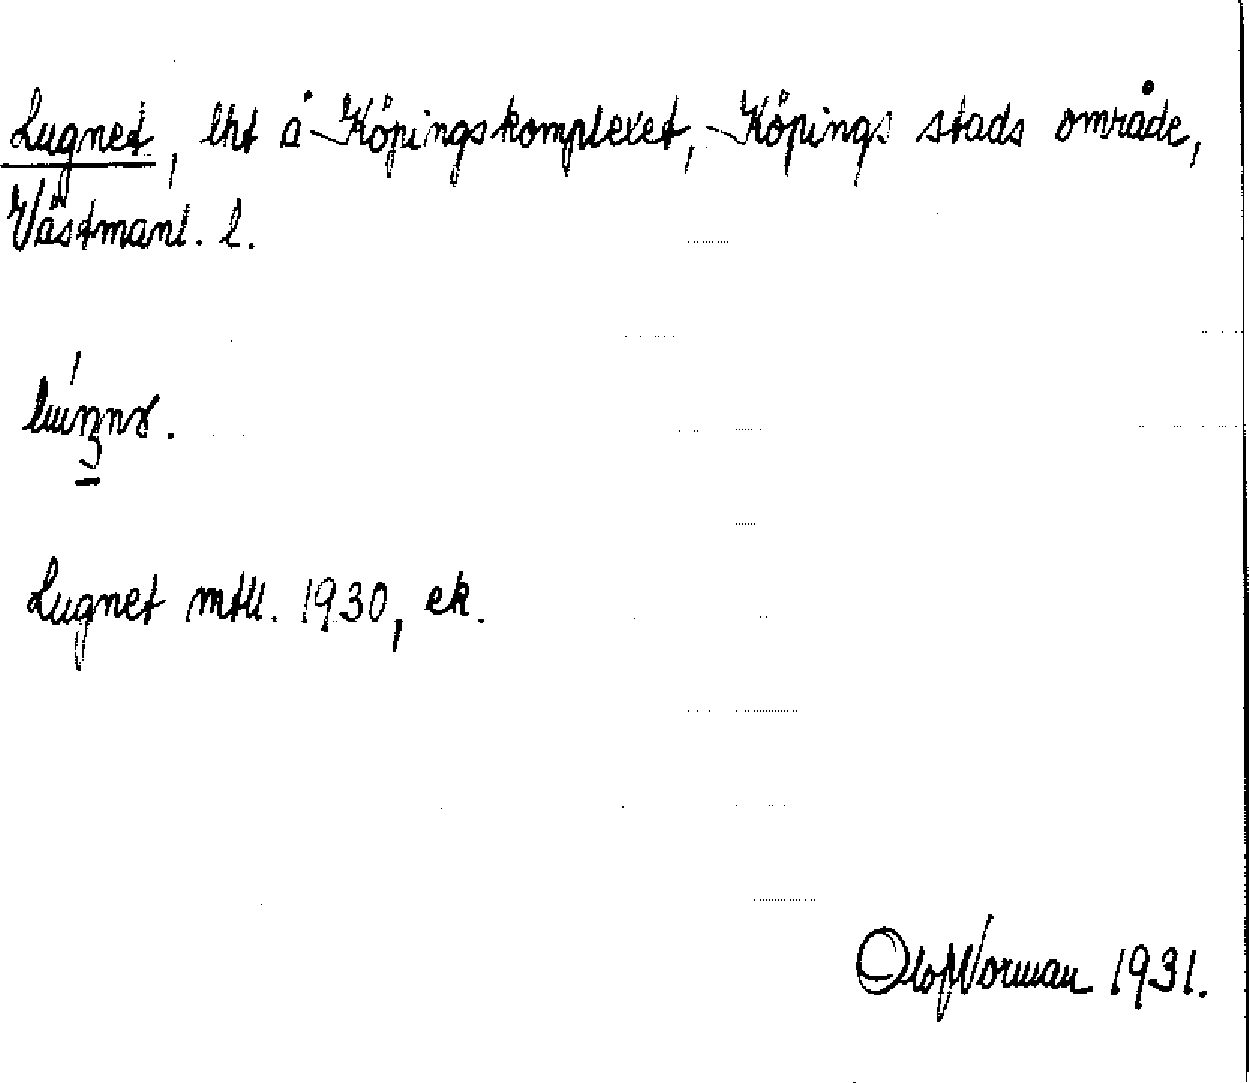 Lugnet, lht å Köpingskomplexet, Köpings stads område,
Västmanl. l.
Lugnet mtll. 1930, ek.
Olof Norman 1931.